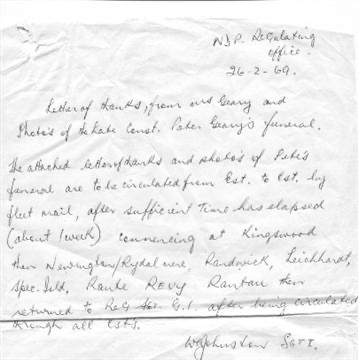 N.S.P. Regulating
Office.
26-2-69.
Letter of thanks, from mrs Geary and
Photo's of the late Const. Peter Geary's funeral.
The attached letter of thanks and photo's of Pete's
funeral are to be circulated from Est. to Est. by
fleet mail, after sufficient Time has elapsed
(about 1 week) commencing at Kingswood
then Newington/Rydalmere, Randwick, Leichhardt,
Spec. Isld, Rante then
returned to Reg G.I. after being circulated
through all Est's.
W Johnston